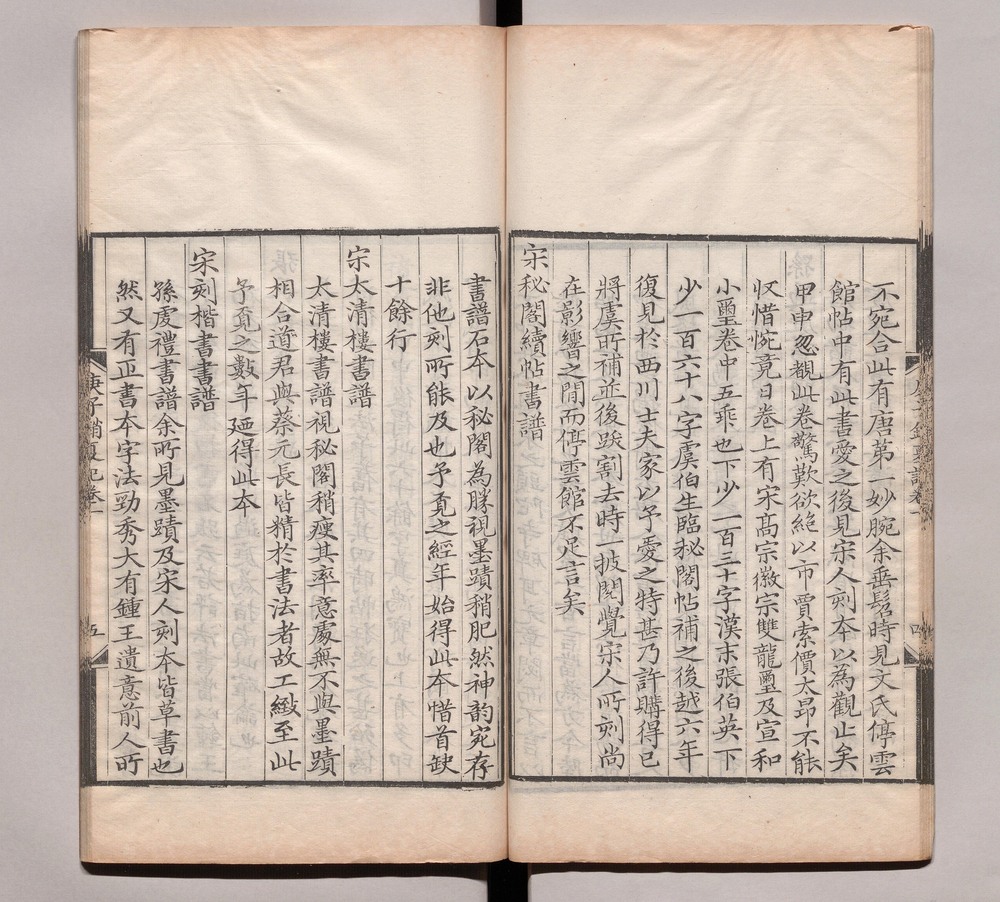 不宛合此有唐第一妙腕余垂髫時見文氏停雲
館帖中有此書愛之後見宋人刻本以為觀止矣
甲申忽覩此卷驚歎欲絶以市賈索價太昂不能
収惜惋竟日卷上有宋髙宗徽宗雙龍璽及宣和
小璽卷中五乖也下少一百三十字漢末張伯英下
少一百六十八字虞伯生臨秘閣帖補之後越六年
復見於西川士夫家以予愛之特甚乃許購得已
將虞所補並後跋割去時一披閱覺宋人所刻尚
在影響之間而停雲館不足言矣
宋秘閣續帖書譜
書譜石本以秘閣為勝視墨蹟稍肥然神韵宛存
非他刻所能及也予覔之經年始得此本惜首缺
十餘行
宋太清樓書譜
太清樓書譜視秘閣稍瘦其率意處無不與墨蹟
相合道君與蔡元長皆精於書法者故工緻至此
予覔之數年廼得此本
宋刻楷書書譜
孫虔禮書譜余所見墨蹟及宋人刻本皆草書也
然又有正書本字法勁秀大有鍾王遺意前人所
庚子銷夏記卷一
五